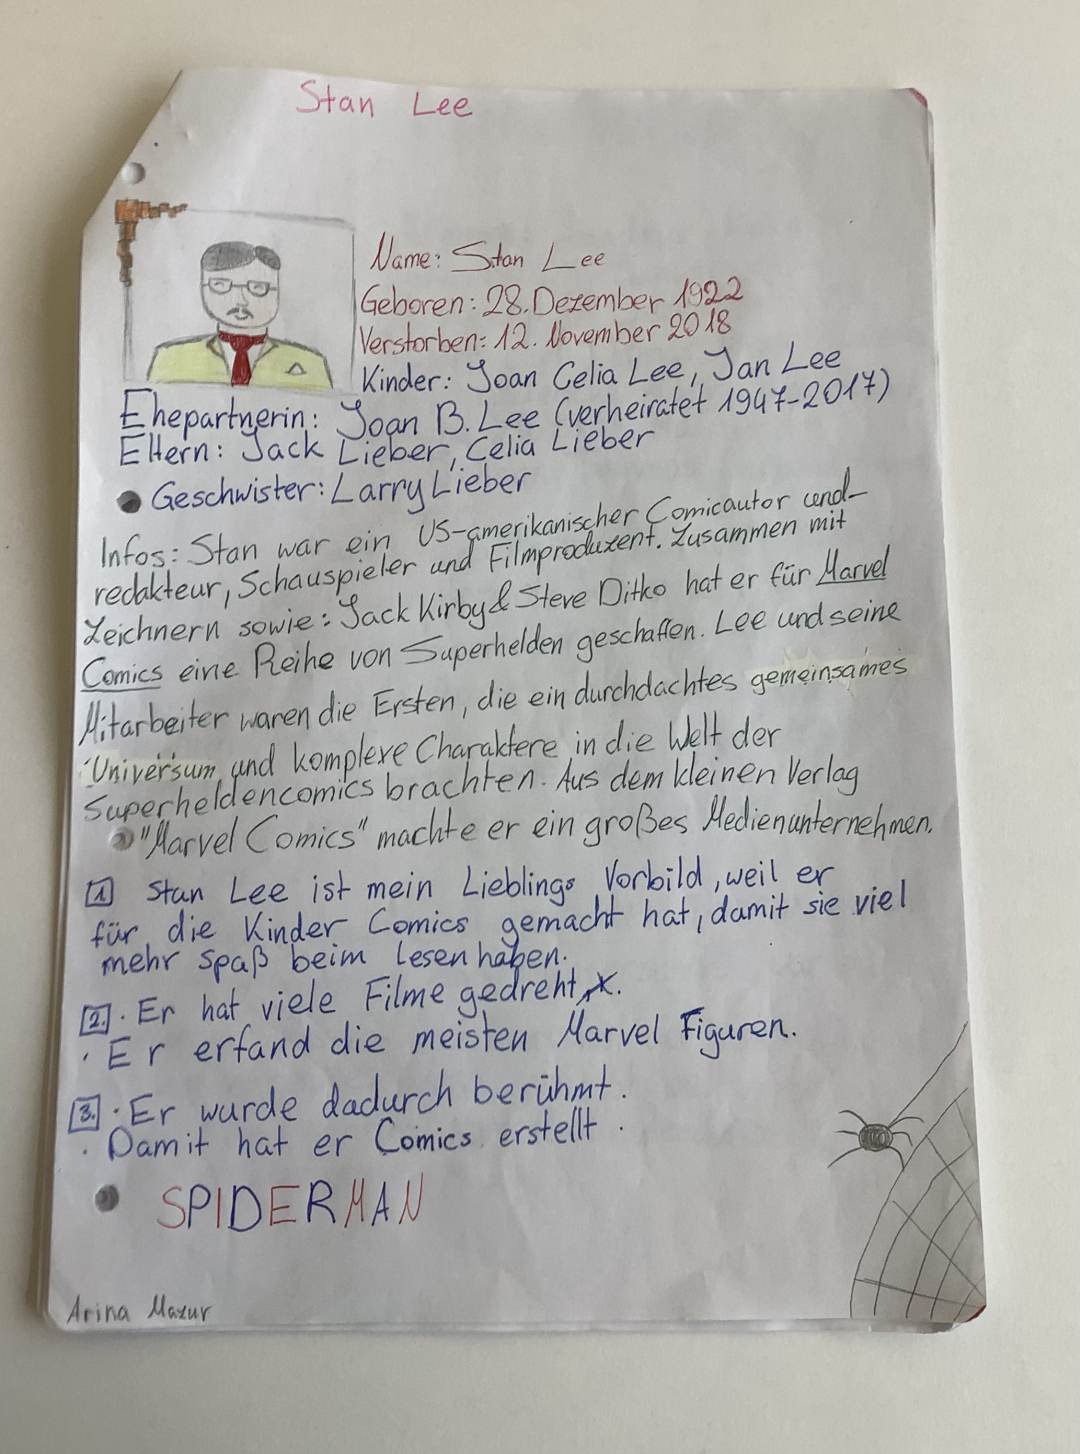 Stan Lee
Name: Stan Lee
Geboren: 28. Dezember 1922
Verstorben: 12. November 2018
Kinder: Joan Celia Lee, Jan Lee
Ehepartnerin: Joan B. Lee (verheiratet 1947-2017)
Eltern: Jack Lieber, Celia Lieber
Geschwister: Larry Lieber
Infos: Stan war ein US-amerikanischer Comicautor und-
redakteur, Schauspieler und Filmproduzent. Zusammen mit
Zeichnern sowie: Jack Kirby & Steve Ditko hat er für Marvel
Comics eine Reihe von Superhelden geschaffen. Lee und seine
Mitarbeiter waren die Ersten, die ein durchdachtes gemeinsames
Universum und komplexe Charaktere in die Welt der
Superheldencomics brachten. Aus dem kleinen Verlag
"Marvel Comics" machte er ein großes Medienunternehmen.
1 Stan Lee ist mein Lieblings Vorbild, weil er
für die Kinder Comics gemacht hat, damit sie viel
mehr spaß beim lesen haben.
2. · Er hat viele Filme gedreht.
· Er erfand die meisten Marvel Figuren.
3. · Er wurde dadurch berühmt.
· Damit hat er Comics erstellt.
SPIDERMAN
Arina Mazur